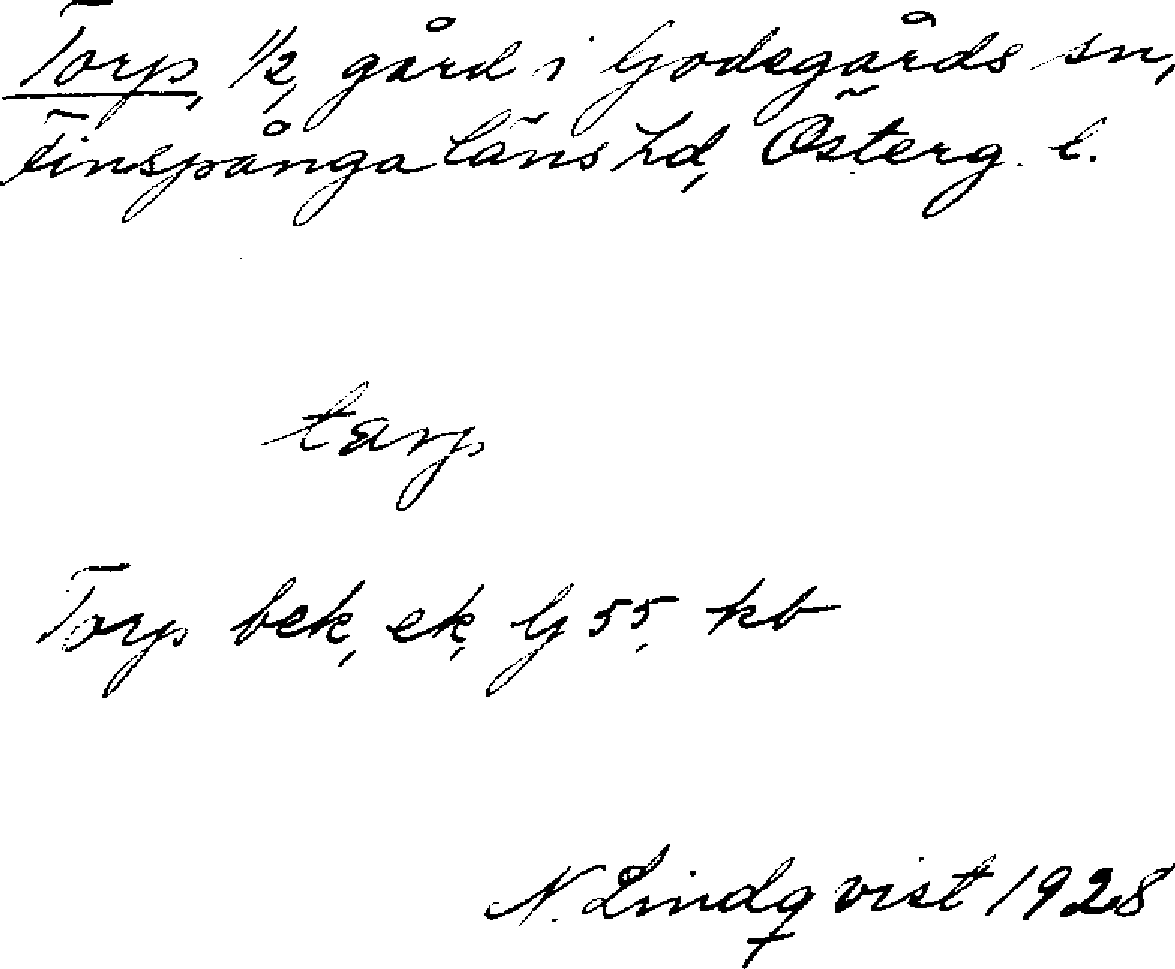 Torp, 1/2, gård i Godegårds sn,
Finspånga läns hd, Österg. l.
tarp
Torp bek, ek, G 55, kb
N. Lindqvist 1928